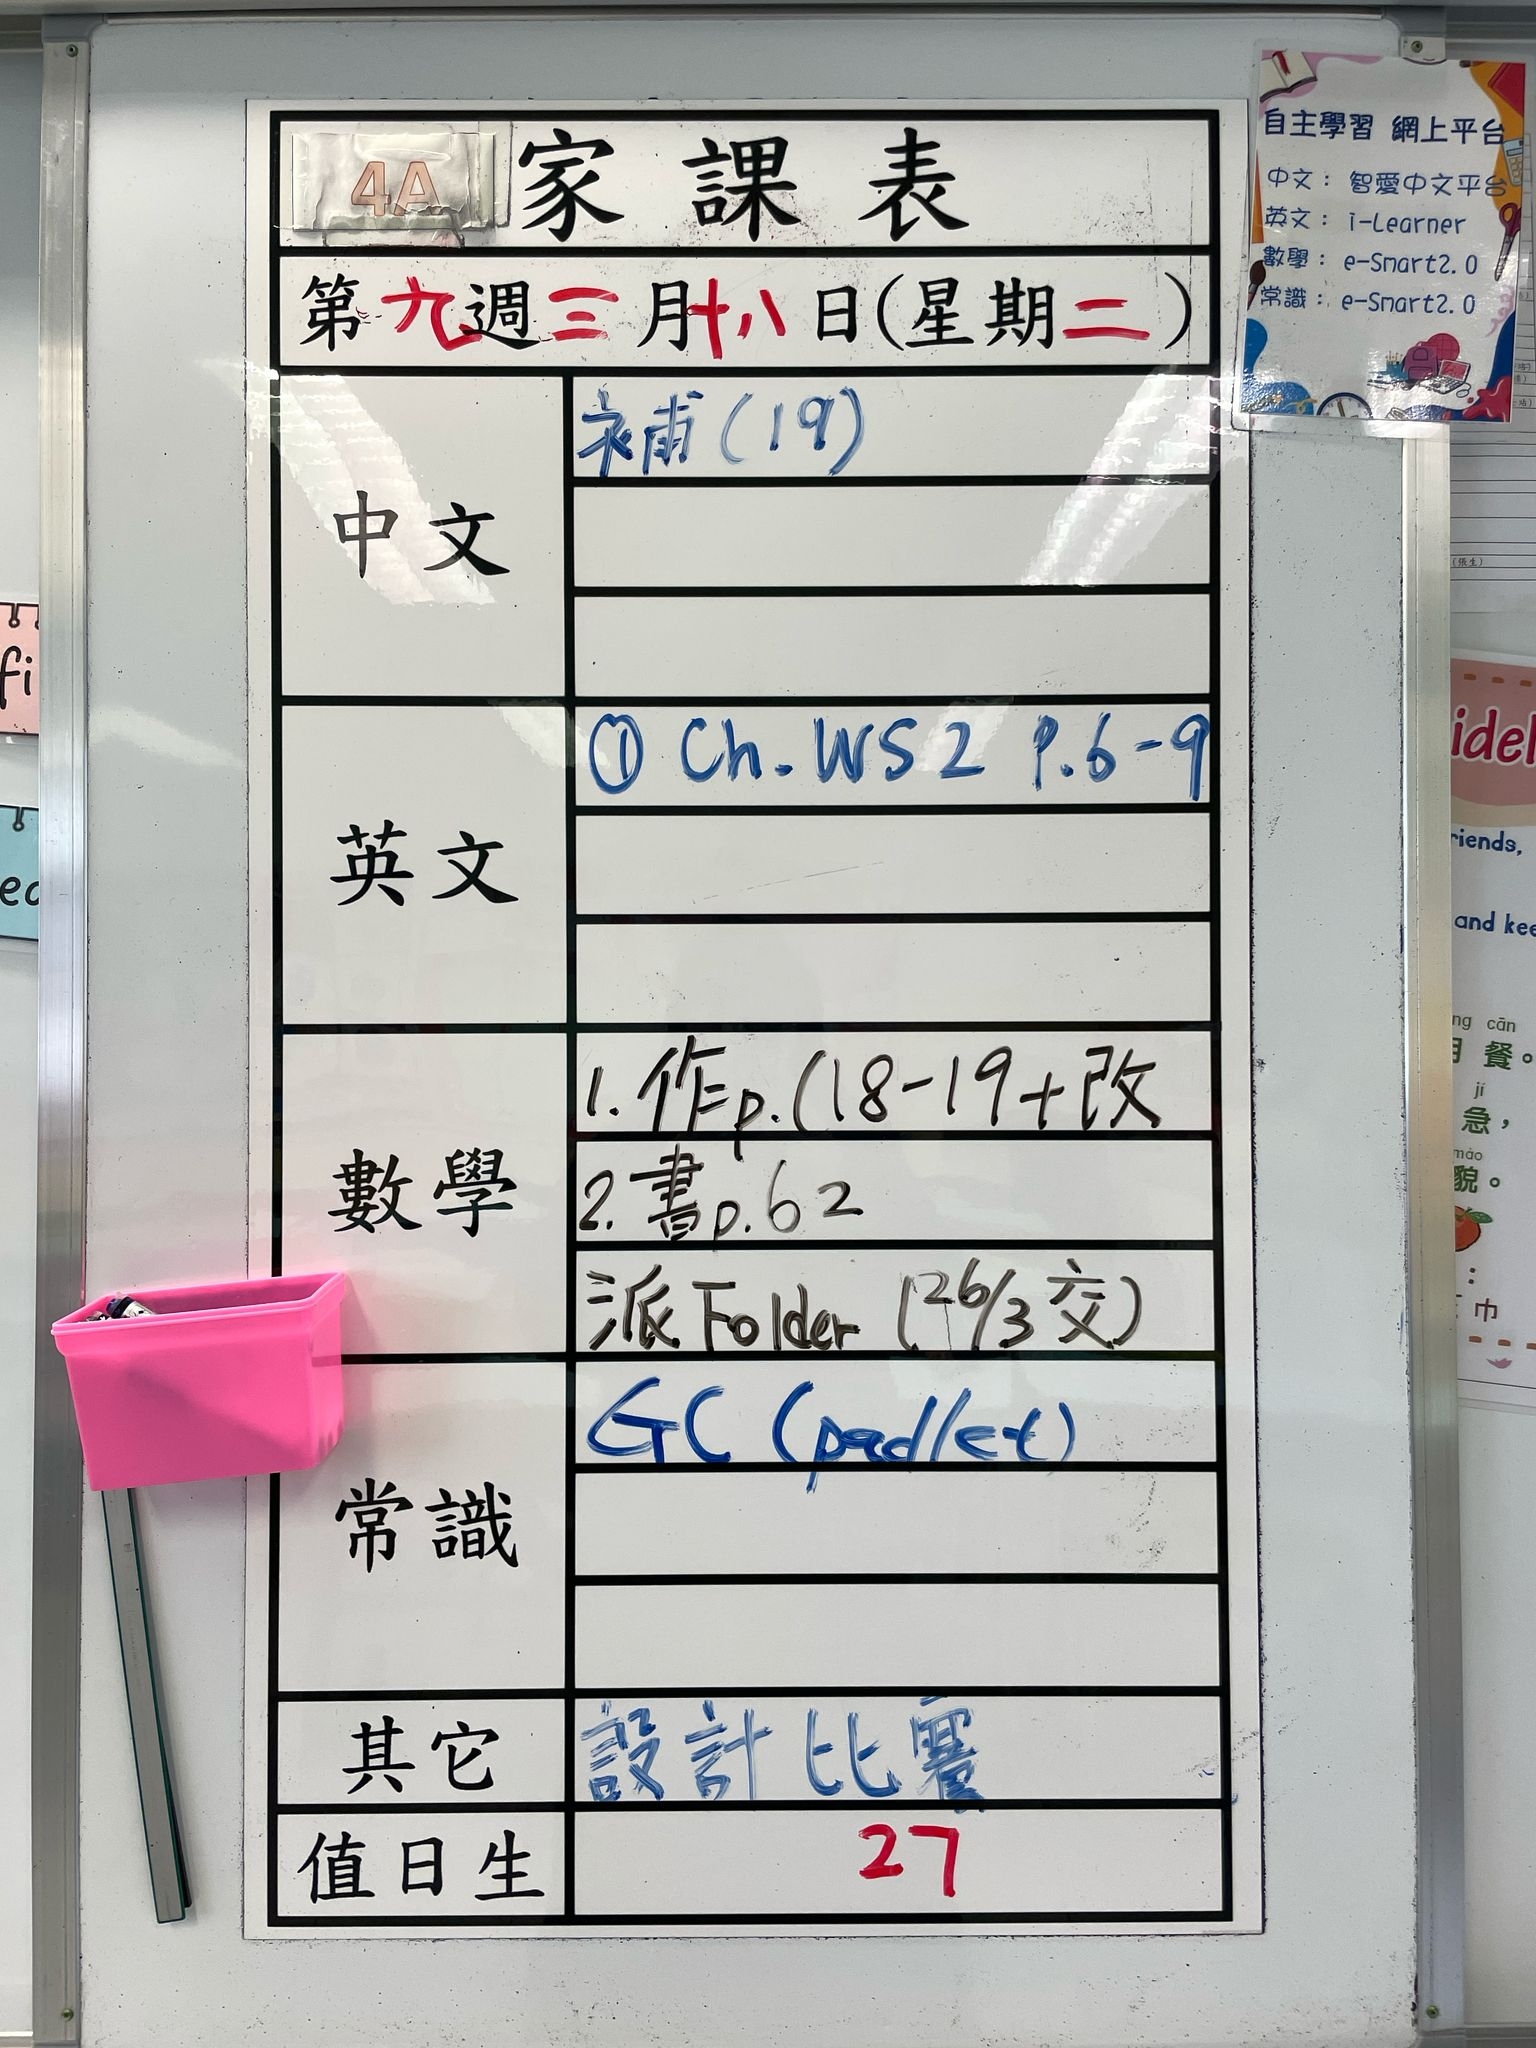 4A 家課表
第九週三月十八日(星期二)
中文
補(19)
英文
① Ch. WS 2 P.6-9
數學
1. 作p.(18-19+改
2. 書p.62
派Folder (26/3交)
常識
GC (padlet)
其它
設計比賽
值日生
27
自主學習 網上平台
中文: 智愛中文平台
英文: i-Learner
數學: e-Smart2.0
常識: e-Smart2.0
(張生)
fi
idel
riends,
and kee
ng cān
餐。
jí
急,
mào
貌。
:
巾